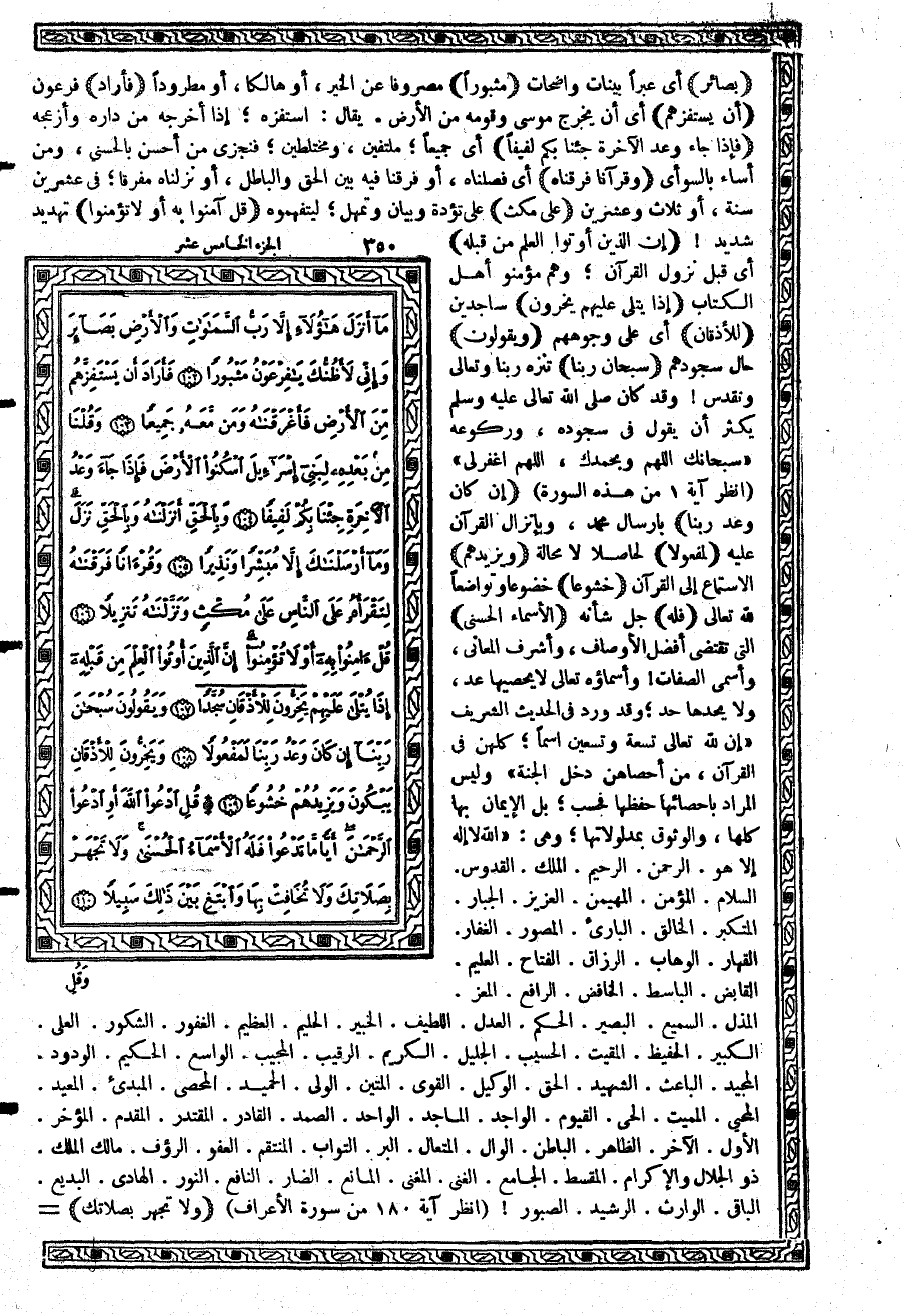 (بصائر) أى عبراً بينات واضحات (مثبوراً) مصروفا عن الخير ، أو هالكا ، أو مطروداً (فأراد) فرعون
(أن يستفزهم) أى أن يخرج موسى وقومه من الأرض . يقال : استفزه ؛ إذا أخرجه من داره وأزعجه
(فإذا جاء وعد الآخرة جئنا بكم لفيفاً) أى جميعاً ؛ ملتفين ، ومختلطين ؛ فنجزى من أحسن بالحسنى ، ومن
أساء بالسوأى (وقرآنا فرقناه) أى فصلناه ، أو فرقنا فيه بين الحق والباطل ، أو نزلناه مفرقا ؛ فى عشرين
سنة ، أو ثلاث وعشرين (على مكث) على تؤدة وبيان وتمهل ؛ ليتفهموه (قل آمنوا به أو لا تؤمنوا) تهديد
شديد ! (إن الذين أوتوا العلم من قبله)
أى قبل نزول القرآن ؛ وهم مؤمنو أهل
الكتاب (إذا يتلى عليهم يخرون) ساجدين
(للأذقان) أى على وجوههم (ويقولون)
حال سجودهم (سبحان ربنا) تنزه ربنا وتعالى
وتقدس ! وقد كان صلى الله تعالى عليه وسلم
يكثر أن يقول فى سجوده ، وركوعه
«سبحانك اللهم وبحمدك ، اللهم اغفرلى»
(انظر آية ١ من هذه السورة) (إن كان
وعد ربنا) بارسال محمد ، وبإنزال القرآن
عليه (لمفعولا) لحاصلا لا محالة (ويزيدهم)
الاستماع إلى القرآن (خشوعا) خضوعا وتواضعاً
لله تعالى (فله) جل شأنه (الأسماء الحسنى)
التى تقتضى أفضل الأوصاف ، وأشرف المعانى ،
وأسمى الصفات ! وأسماؤه تعالى لا يحصيها عد ،
ولا يحدها حد ؛ وقد ورد فى الحديث الشريف
«إن لله تعالى تسعة وتسعين اسماً ؛ كلهن فى
القرآن ، من أحصاهن دخل الجنة» وليس
المراد باحصائها حفظها فحسب ؛ بل الإيمان بها
كلها ، والوثوق بمدلولاتها ؛ وهى : «الله لا إله
إلا هو . الرحمن . الرحيم . الملك . القدوس .
السلام . المؤمن . المهيمن . العزيز . الجبار .
المتكبر . الخالق . البارئ . المصور . الغفار .
القهار . الوهاب . الرزاق . الفتاح . العليم .
القابض . الباسط . الخافض . الرافع . المعز .
٣٥٠ الجزء الخامس عشر
مَآ أَنزَلَ هَٰٓؤُلَآءِ إِلَّا رَبُّ ٱلسَّمَٰوَٰتِ وَٱلْأَرْضِ بَصَآئِرَ
وَإِنِّى لَأَظُنُّكَ يَٰفِرْعَوْنُ مَثْبُورًا ١٠٢ فَأَرَادَ أَن يَسْتَفِزَّهُم
مِّنَ ٱلْأَرْضِ فَأَغْرَقْنَٰهُ وَمَن مَّعَهُۥ جَمِيعًا ١٠٣ وَقُلْنَا
مِنۢ بَعْدِهِۦ لِبَنِىٓ إِسْرَٰٓءِيلَ ٱسْكُنُوا۟ ٱلْأَرْضَ فَإِذَا جَآءَ وَعْدُ
ٱلْءَاخِرَةِ جِئْنَا بِكُمْ لَفِيفًا ١٠٤ وَبِٱلْحَقِّ أَنزَلْنَٰهُ وَبِٱلْحَقِّ نَزَلَ ۗ
وَمَآ أَرْسَلْنَٰكَ إِلَّا مُبَشِّرًا وَنَذِيرًا ١٠٥ وَقُرْءَانًا فَرَقْنَٰهُ
لِتَقْرَأَهُۥ عَلَى ٱلنَّاسِ عَلَىٰ مُكْثٍ وَنَزَّلْنَٰهُ تَنزِيلًا ١٠٦
قُلْ ءَامِنُوا۟ بِهِۦٓ أَوْ لَا تُؤْمِنُوٓا۟ ۚ إِنَّ ٱلَّذِينَ أُوتُوا۟ ٱلْعِلْمَ مِن قَبْلِهِۦٓ
إِذَا يُتْلَىٰ عَلَيْهِمْ يَخِرُّونَ لِلْأَذْقَانِ سُجَّدًا ١٠٧ وَيَقُولُونَ سُبْحَٰنَ
رَبِّنَآ إِن كَانَ وَعْدُ رَبِّنَا لَمَفْعُولًا ١٠٨ وَيَخِرُّونَ لِلْأَذْقَانِ
يَبْكُونَ وَيَزِيدُهُمْ خُشُوعًا ١٠٩ قُلِ ٱدْعُوا۟ ٱللَّهَ أَوِ ٱدْعُوا۟
ٱلرَّحْمَٰنَ ۖ أَيًّا مَّا تَدْعُوا۟ فَلَهُ ٱلْأَسْمَآءُ ٱلْحُسْنَىٰ ۚ وَلَا تَجْهَرْ
بِصَلَاتِكَ وَلَا تُخَافِتْ بِهَا وَٱبْتَغِ بَيْنَ ذَٰلِكَ سَبِيلًا ١١٠
وَقُلِ
المذل . السميع . البصير . الحكم . العدل . اللطيف . الخبير . الحليم . العظيم . الغفور . الشكور . العلى .
الكبير . الحفيظ . المقيت . الحسيب . الجليل . الكريم . الرقيب . المجيب . الواسع . الحكيم . الودود .
المجيد . الباعث . الشهيد . الحق . الوكيل . القوى . المتين . الولى . الحميد . المحصى . المبدئ . المعيد .
المحيى . المميت . الحى . القيوم . الواجد . الماجد . الواحد . الصمد . القادر . المقتدر . المقدم . المؤخر .
الأول . الآخر . الظاهر . الباطن . الوال . المتعال . البر . التواب . المنتقم . العفو . الرؤف . مالك الملك .
ذو الجلال والإكرام . المقسط . الجامع . الغنى . المغنى . المانع . الضار . النافع . النور . الهادى . البديع .
الباقى . الوارث . الرشيد . الصبور ! (انظر آية ١٨٠ من سورة الأعراف) (ولا تجهر بصلاتك) =